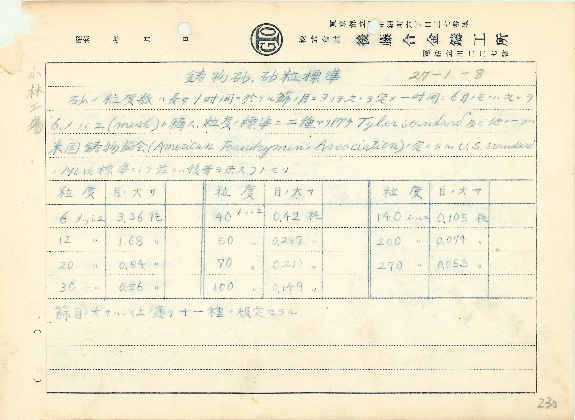 東京都立川市錦町六丁目二七番地
株式会社 後藤合金鋳工所
昭和 年 月 日
小林工場
鋳物砂、砂粒標準 27-1-8
砂ノ粒度数ハ長サ1吋間ニ於ケル篩ノ目
6メッシュ(mesh)ト稱ス、粒度標準ニ二種アリ即チTyler standard及ビ他ノ一ツハ
米国鋳物協會(American Foundrymen's Association)ノ定メタルU.S. standard
Mesh標準
粒度 目ノ大サ 粒度 目ノ大サ 粒度 目ノ大サ
6 メッシュ 3.36 粍 40 メッシュ 0.42 粍 140 メッシュ 0.105 粍
12 〃 1.68 〃 50 〃 0.297 〃 200 〃 0.074 〃
20 〃 0.84 〃 70 〃 0.210 〃 270 〃 0.053 〃
30 〃 0.56 〃 100 〃 0.149 〃
篩目ノ大サハ以上ノ通リ十一種ノ規定
230